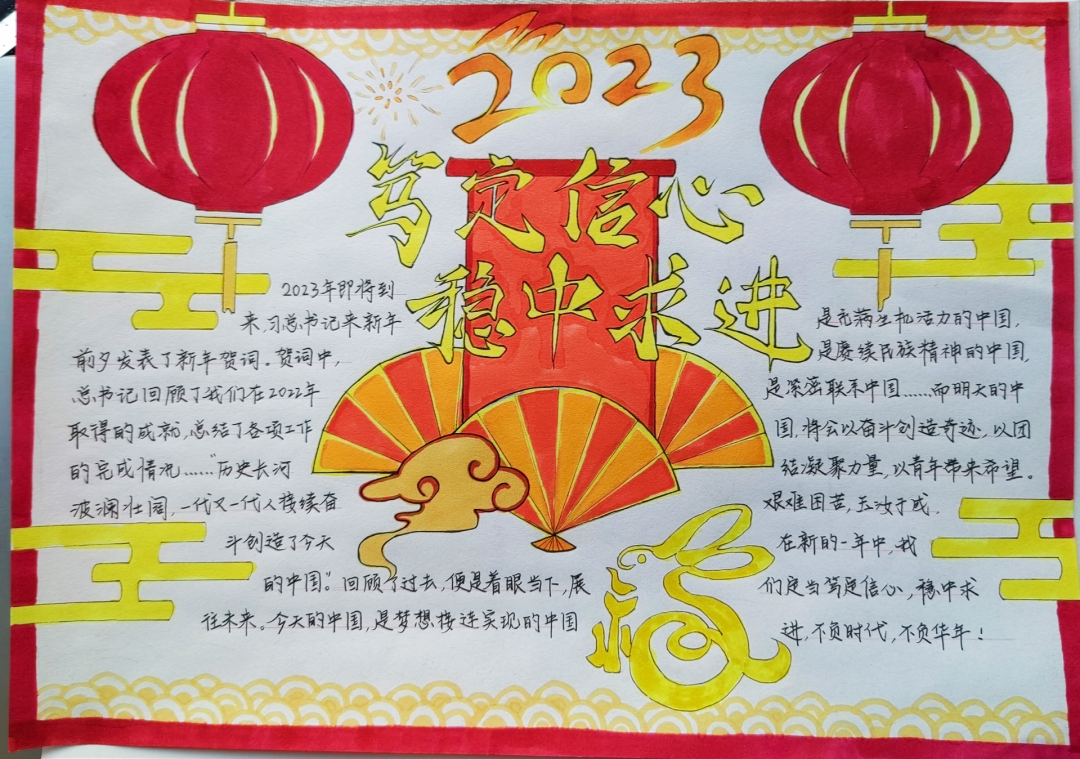 2023
笃定信心
稳中求进
2023年即将到
来,习总书记来新年
前夕发表了新年贺词。贺词中,
总书记回顾了我们在2022年
取得的成就,总结了各项工作
的完成情况……“历史长河
波澜壮阔,一代又一代人接续奋
斗创造了今天
的中国”。回顾了过去,便是着眼当下,展
往未来。今天的中国,是梦想接连实现的中国
是充满生机活力的中国,
是赓续民族精神的中国,
是紧密联系中国……而明天的中
国,将会以奋斗创造奇迹,以团
结凝聚力量,以青年带来希望。
艰难困苦,玉汝于成,
在新的一年中,我
们定当笃定信心,稳中求
进,不负时代,不负华年!
福